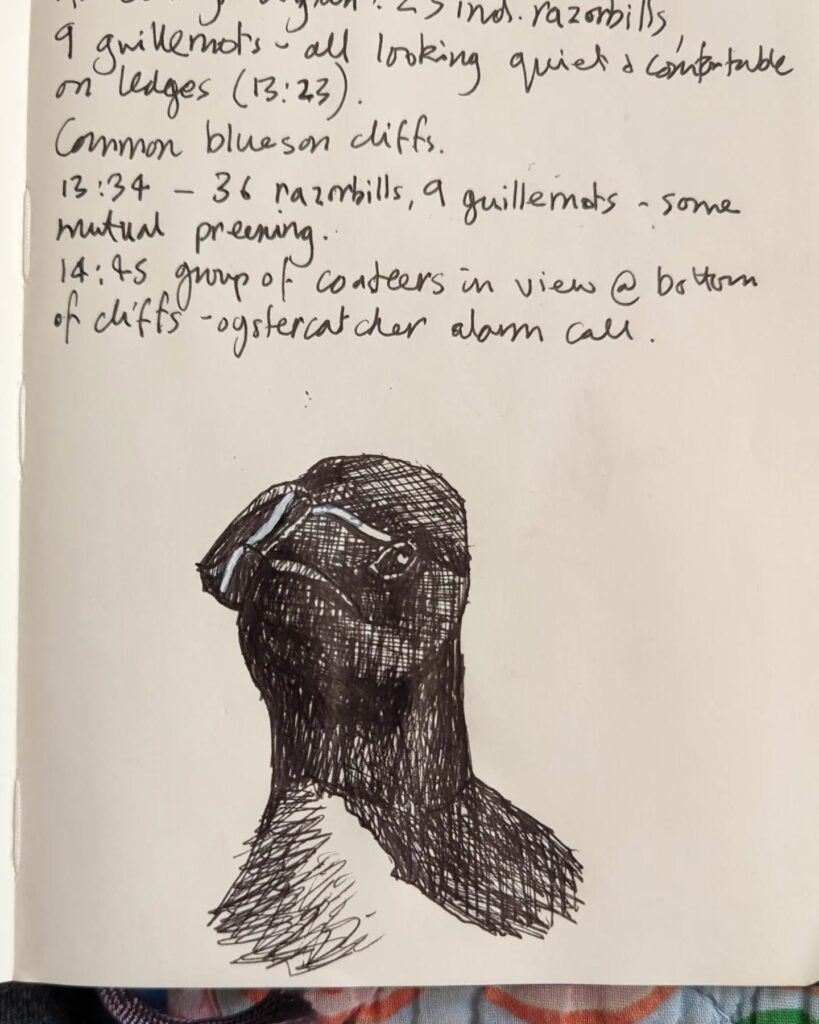 23 ind. razorbills,
9 guillemots - all looking quiet & comfortable
on ledges (13:23).
Common blues on cliffs.
13:34 - 36 razorbills, 9 guillemots - some
mutual preening.
14:45 group of coasteers in view @ bottom
of cliffs - oystercatcher alarm call.